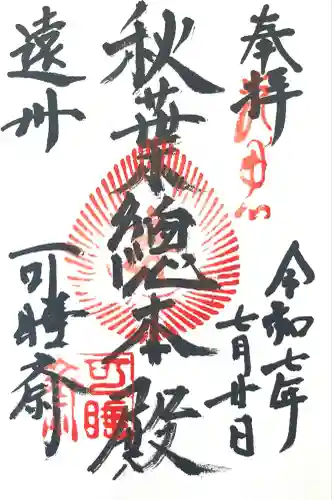 奉拝
令和七年
七月廿日
秋葉總本殿
遠州
可睡斎
可睡斎